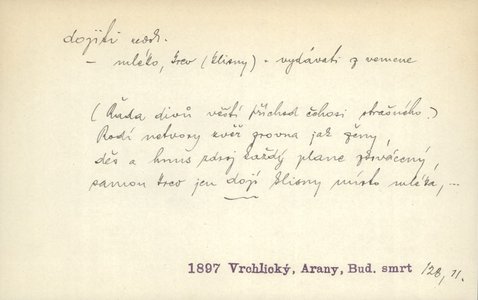 dojiti ned.
– mléko, krev (klisny) - vydávati z vemene
(Řada divů věstí příchod čehosi strašného.)
Rodí netvory zvěř zrovna jak ženy,
děs a hnus zdroj každý plane zkrvácený,
samou krev jen dojí klisny místo mléka, ...
1897 Vrchlický, Arany, Bud. smrt 128, 11.